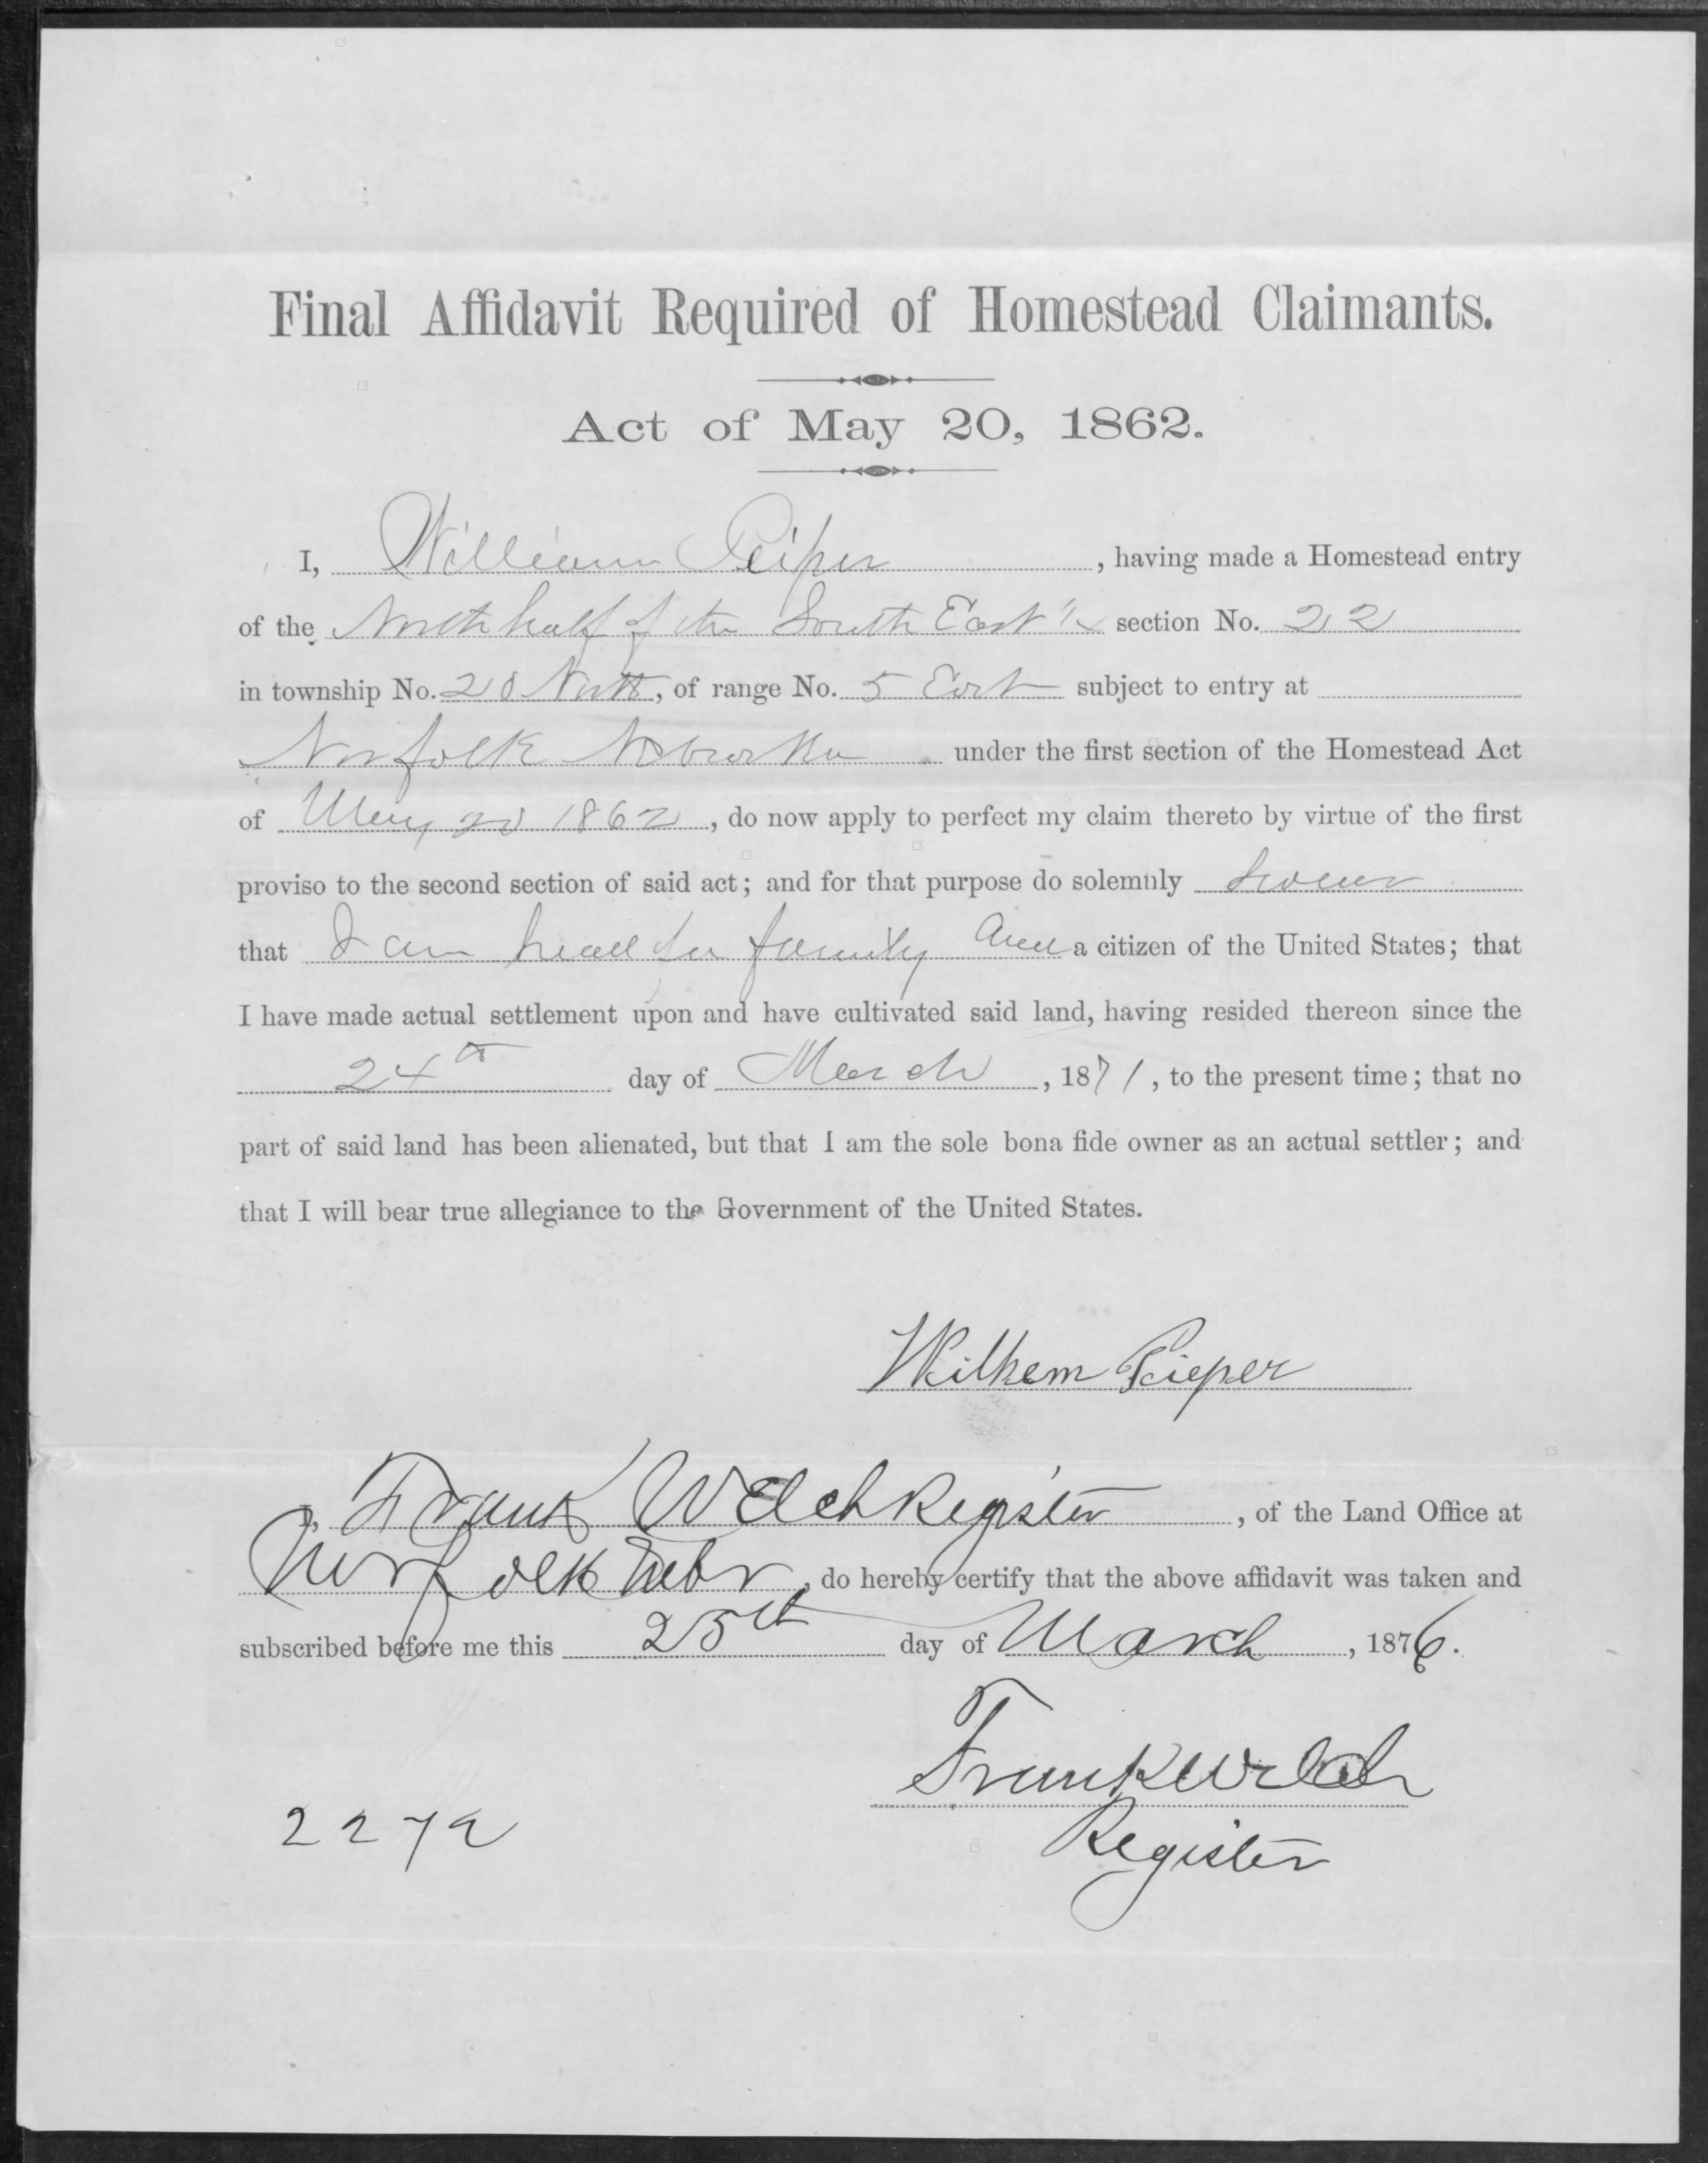 Final Affidavit Required of Homestead Claimants.
Act of May 20, 1862.
I, William Peiper, having made a Homestead entry
of the North half of the South East 1/4 section No. 22
in township No. 20 North, of range No. 5 East subject to entry at
Norfolk Nebraska under the first section of the Homestead Act
of May 20 1862, do now apply to perfect my claim thereto by virtue of the first
proviso to the second section of said act; and for that purpose do solemnly swear
that I am head of a family and a citizen of the United States; that
I have made actual settlement upon and have cultivated said land, having resided thereon since the
24th day of March, 1871, to the present time; that no
part of said land has been alienated, but that I am the sole bona fide owner as an actual settler; and
that I will bear true allegiance to the Government of the United States.
Wilhem Pieper
I, Frank Welch Register, of the Land Office at
Norfolk Nebr, do hereby certify that the above affidavit was taken and
subscribed before me this 25th day of March, 1876.
Frank Welch
2272
Register